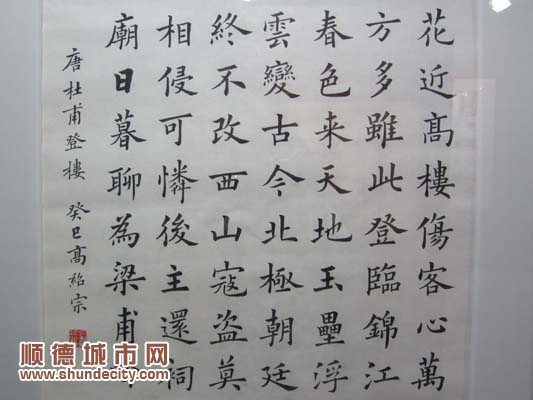 花近髙樓傷客心萬
方多雖此登臨錦江
春色来天地玉壘浮
雲變古今北極朝廷
終不改西山寇盜莫
相侵可憐後主還祠
廟日暮聊為梁甫吟
唐杜甫登樓 癸巳髙紹宗
顺德城市网
www.shundecity.com